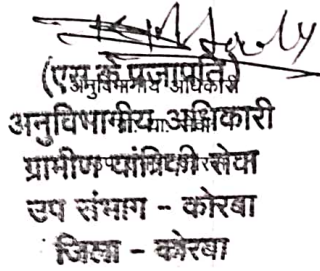 (एस.के.प्रजापति)
अनुविभागीय अधिकारी
अनुविभागीय अधिकारी
ग्रामीण यांत्रिकी सेवा
उप संभाग - कोरबा
जिला - कोरबा